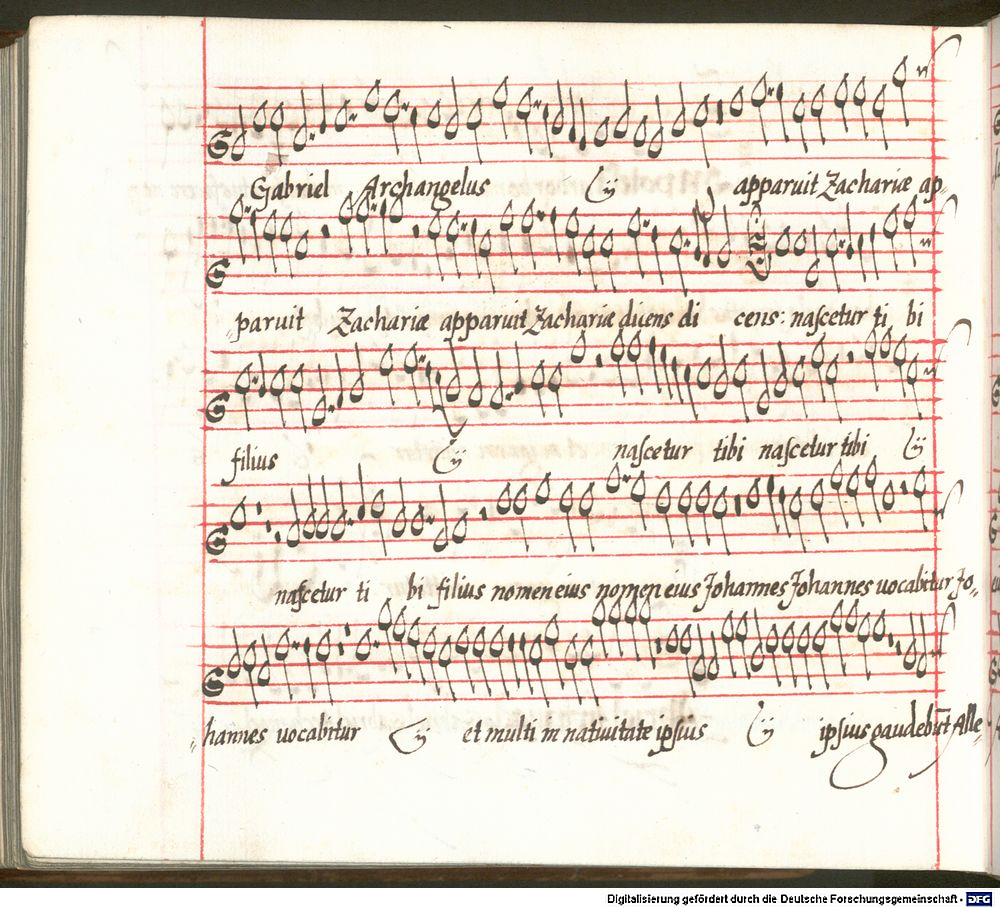 Gabriel Archangelus ij apparuit Zachariæ ap-
paruit Zachariæ apparuit Zachariæ dicens di cens: nascetur ti bi
filius ij nascetur tibi nascetur tibi ij
nascetur ti bi filius nomen eius nomen eius Johannes Johannes uocabitur Jo-
hannes uocabitur ij et multi in natiuitate ipsius ij ipsius gaudebūt Alle-
Digitalisierung gefördert durch die Deutsche Forschungsgemeinschaft - DFG